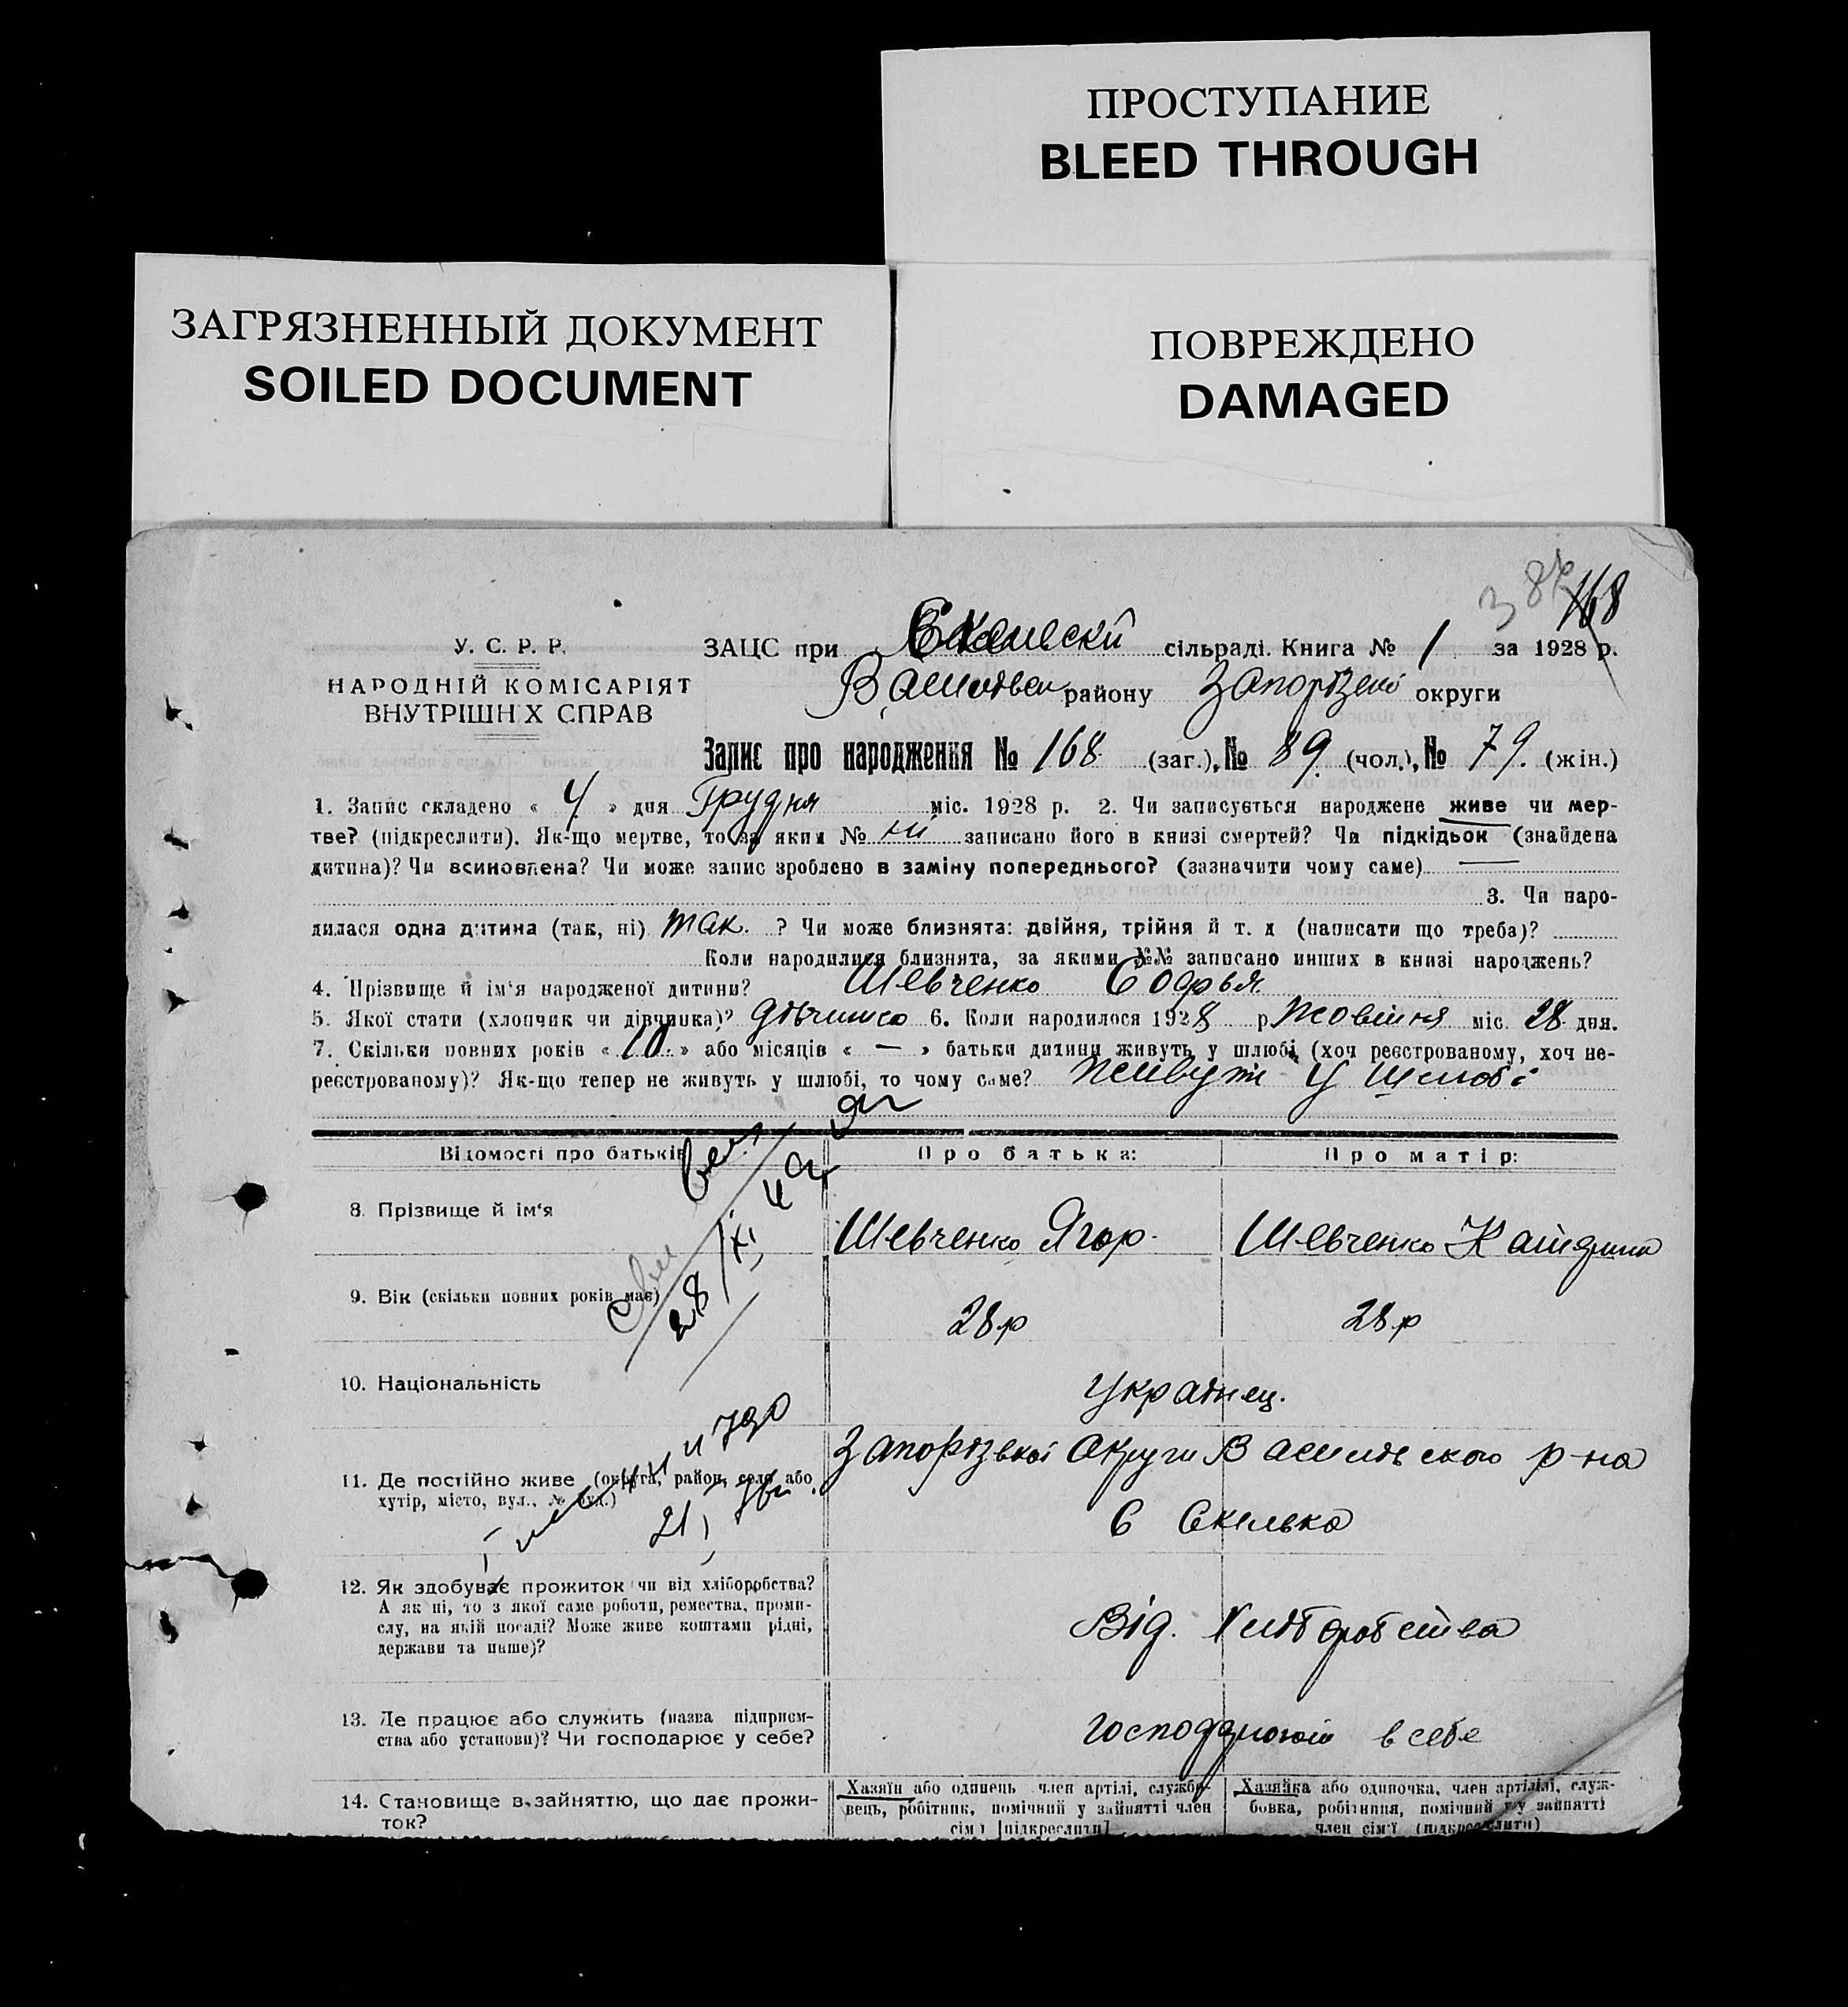 ПРОСТУПАНИЕ
BLEED THROUGH
ЗАГРЯЗНЕННЫЙ ДОКУМЕНТ
SOILED DOCUMENT
ПОВРЕЖДЕНО
DAMAGED
168
У. С. Р. Р.
НАРОДНІЙ КОМІСАРІЯТ
ВНУТРІШН Х СПРАВ
ЗАЦС при сільраді. Книга № 1 за 1928 р.
району Запорізької округи
Запис про народження № 168 (заг.), № 89. (чол.), № 79. (жін.)
1. Запис складено « 4 » дня Грудня міс. 1928 р. 2. Чи записується народжене живе чи мер-
тве? (підкреслити). Як-що мертве, то за яким № ні записано його в книзі смертей? Чи підкідьок (знайдена
дитина)? Чи всиновлена? Чи може запис зроблено в заміну попереднього? (зазначити чому саме) —
3. Чи наро-
дилася одна дитина (так, ні) так. ? Чи може близнята: двійня, трійня й т. д (написати що треба)?
Коли народилися близнята, за якими №№ записано инших в книзі народжень?
4. Прізвище й ім'я народженої дитини? Шевченко Софья
5. Якої стати (хлопчик чи дівчинка)? дівчинка 6. Коли народилося 1928 р Жовтня міс. 28 дня.
7. Скільки повних років « 10 » або місяців « — » батьки дитини живуть у шлюбі (хоч реєстрованому, хоч не-
реєстрованому)? Як-що тепер не живуть у шлюбі, то чому саме? Живуть у шлюбі
Відомості про батьків
Про батька:
Про матір:
8. Прізвище й ім'я
Шевченко Ягор.
Шевченко Катерина
9. Вік (скільки повних років має)
28 р
28 р
10. Національність
Українец.
11. Де постійно живе (округа, район, село або
хутір, місто, вул., № буд.)
Запорізької Округи Васильевского р-на
С Скелька
12. Як здобуває прожиток чи від хліборобства?
А як ні, то з якої саме роботи, ремества, проми-
слу, на якій посаді? Може живе коштами рідні,
держави та инше)?
Від. Хліборобства
13. Де працює або служить (назва підприєм-
ства або установи)? Чи господарює у себе?
господарюют в себе
14. Становище в зайняттю, що дає прожи-
ток?
Хазяїн або одинець член артілі, службо-
вець, робітник, помічний у зайнятті член
сім'ї [підкреслити]
Хазяйка або одиночка, член артілілі, служ-
бовка, робітниця, помічний у зайнятті
член сім'ї (підкреслити)